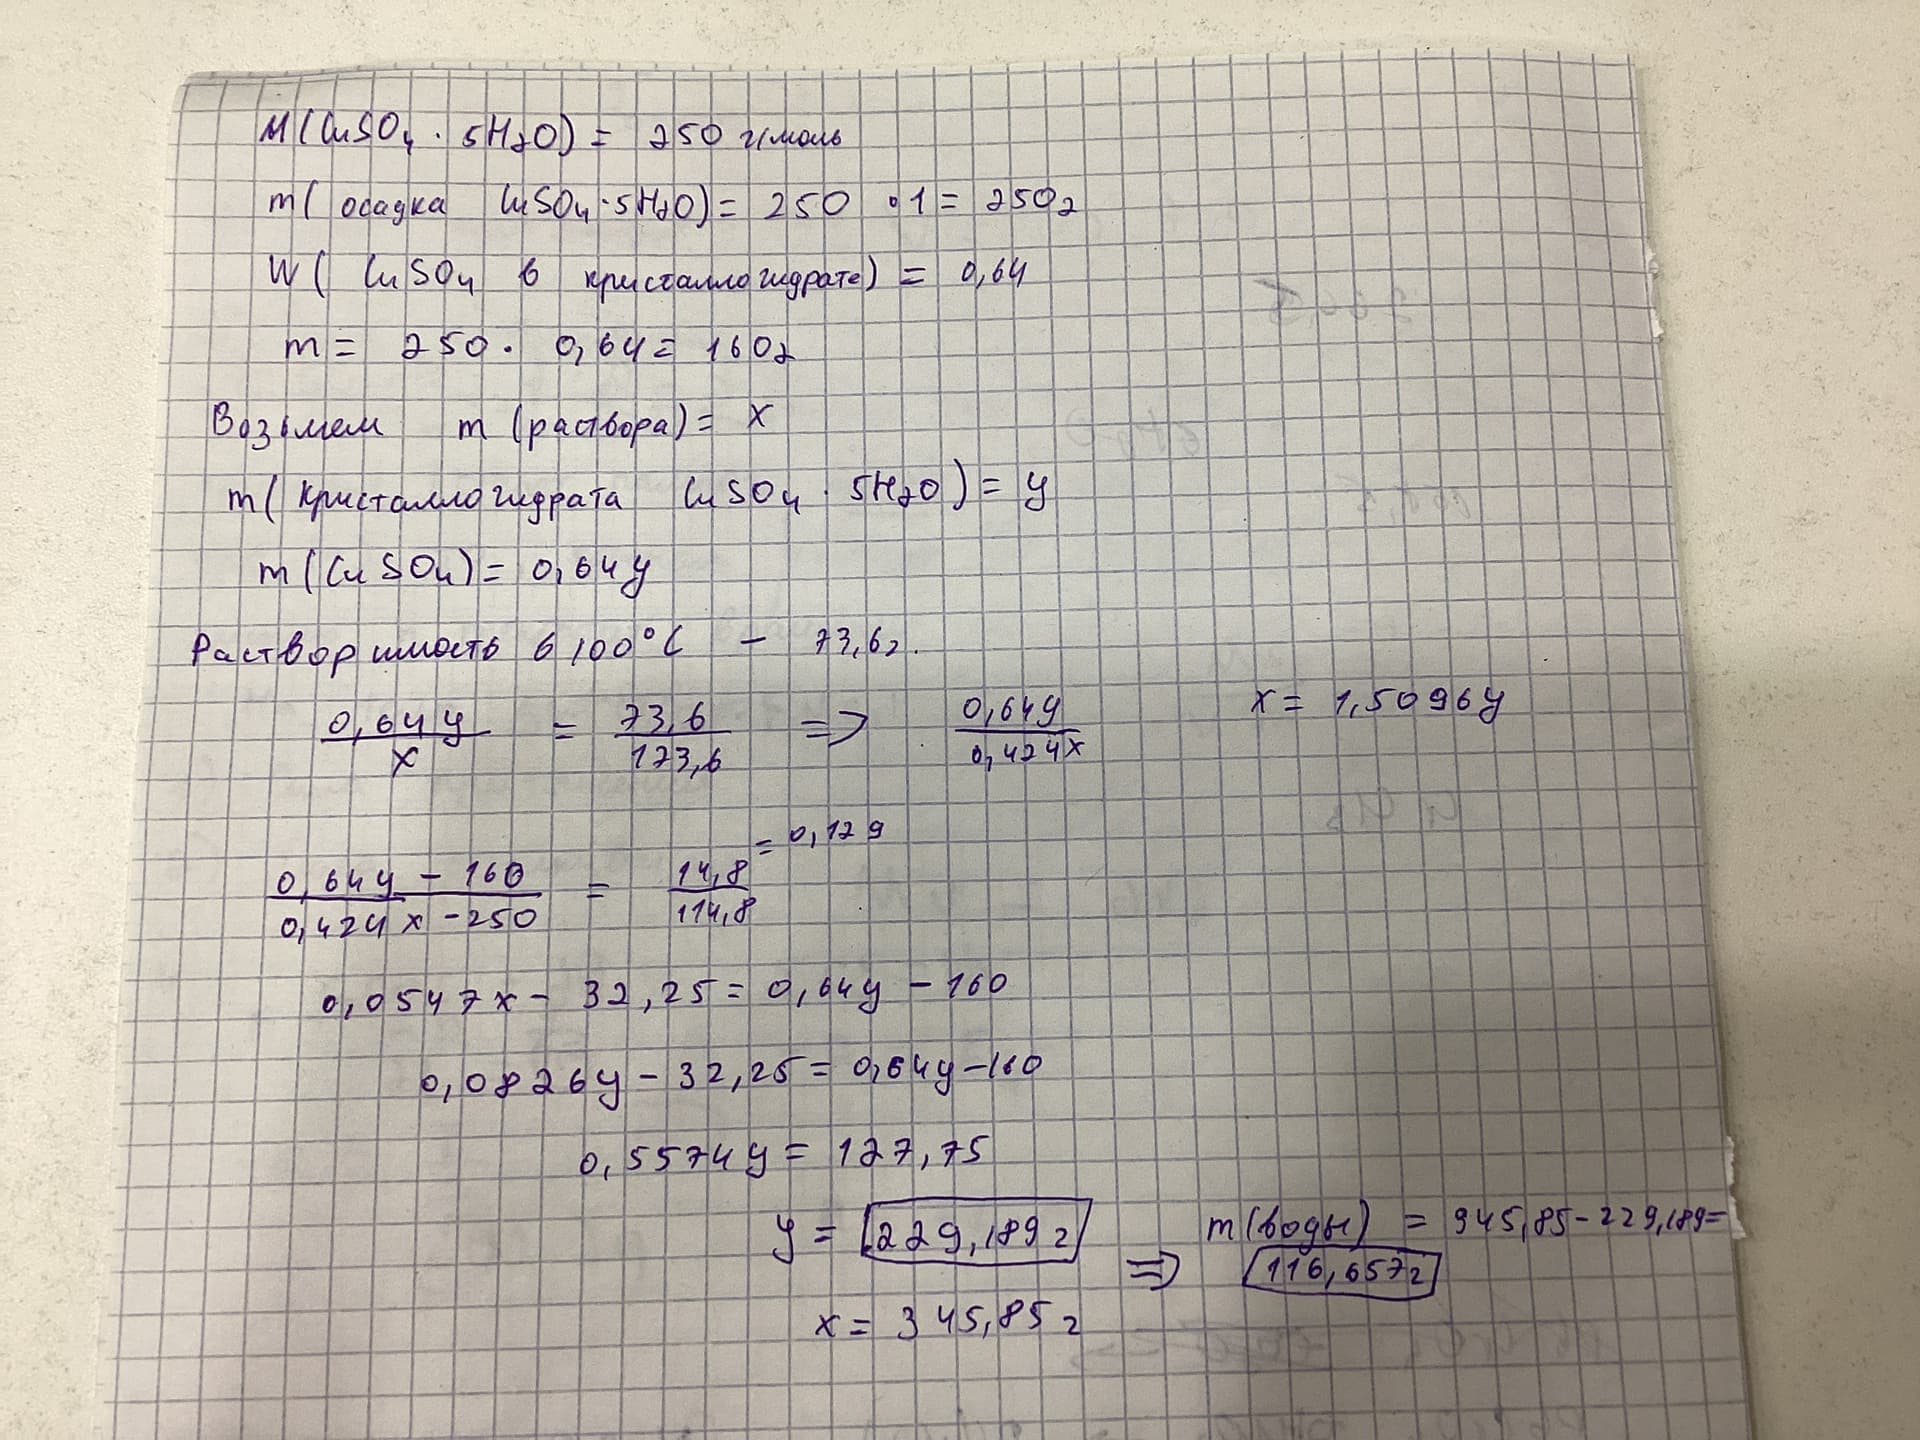 M(CuSO4 · 5H2O) = 250 г/моль
m( осадка CuSO4·5H2O) = 250 · 1 = 250г
W( CuSO4 в кристаллогидрате) = 0,64
m = 250 · 0,64 = 160г
Возьмем m (раствора) = x
m( кристаллогидрата CuSO4 · 5H2O) = y
m(CuSO4) = 0,64y
Растворимость в 100°C – 73,6г.
0,64y / x = 73,6 / 173,6 => 0,64y / 0,424x x = 1,5096y
0,64y – 160 / 0,424x – 250 = 14,8 / 114,8 = 0,129
0,0547x – 32,25 = 0,64y – 160
0,0826y – 32,25 = 0,64y – 160
0,5574y = 127,75
y = 229,189г => m(воды) = 345,85 – 229,189 =
116,657г
x = 345,85г